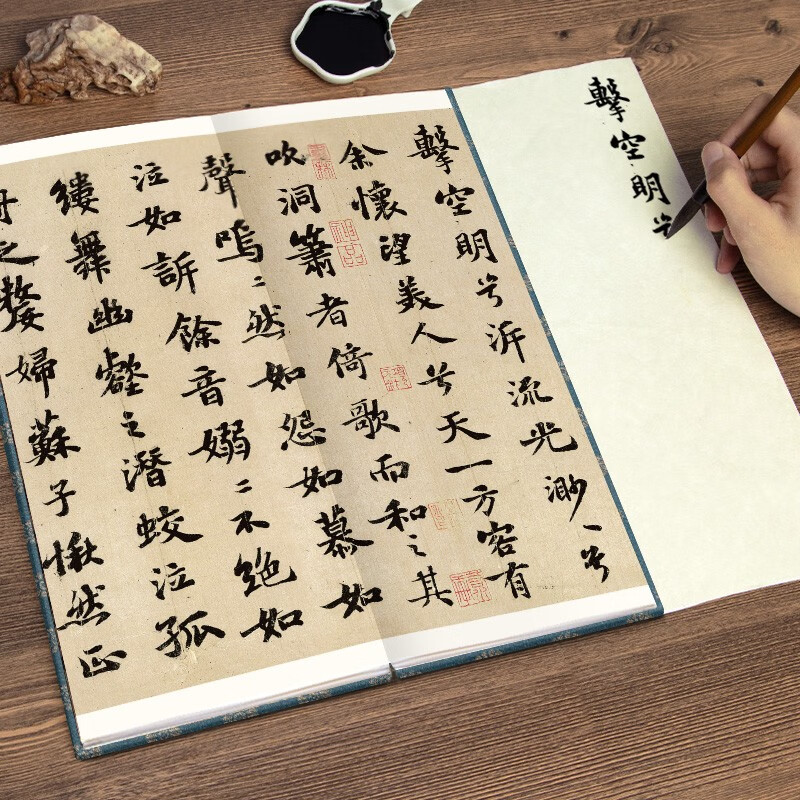 擊空明兮
擊空明兮泝流光渺〻兮
余懷望美人兮天一方客有
吹洞簫者倚歌而和之其
聲嗚〻然如怨如慕如
泣如訴餘音嫋〻不絕如
縷舞幽壑之潛蛟泣孤
舟之嫠婦蘇子愀然正